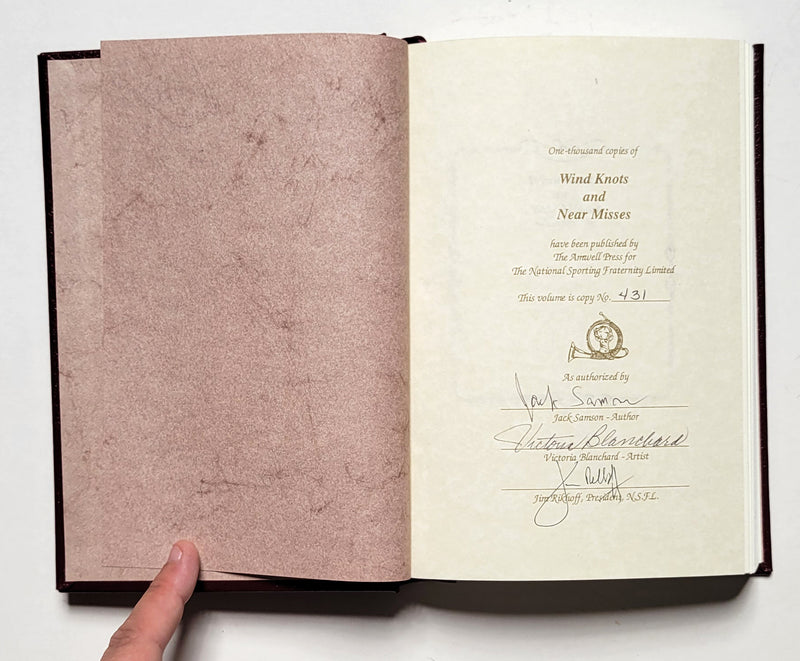 One-thousand copies of
Wind Knots
and
Near Misses
have been published by
The Amwell Press for
The National Sporting Fraternity Limited
This volume is copy No. 431
As authorized by
Jack Samson
Jack Samson - Author
Victoria Blanchard
Victoria Blanchard - Artist
Jim Rikhoff, President, N.S.F.L.